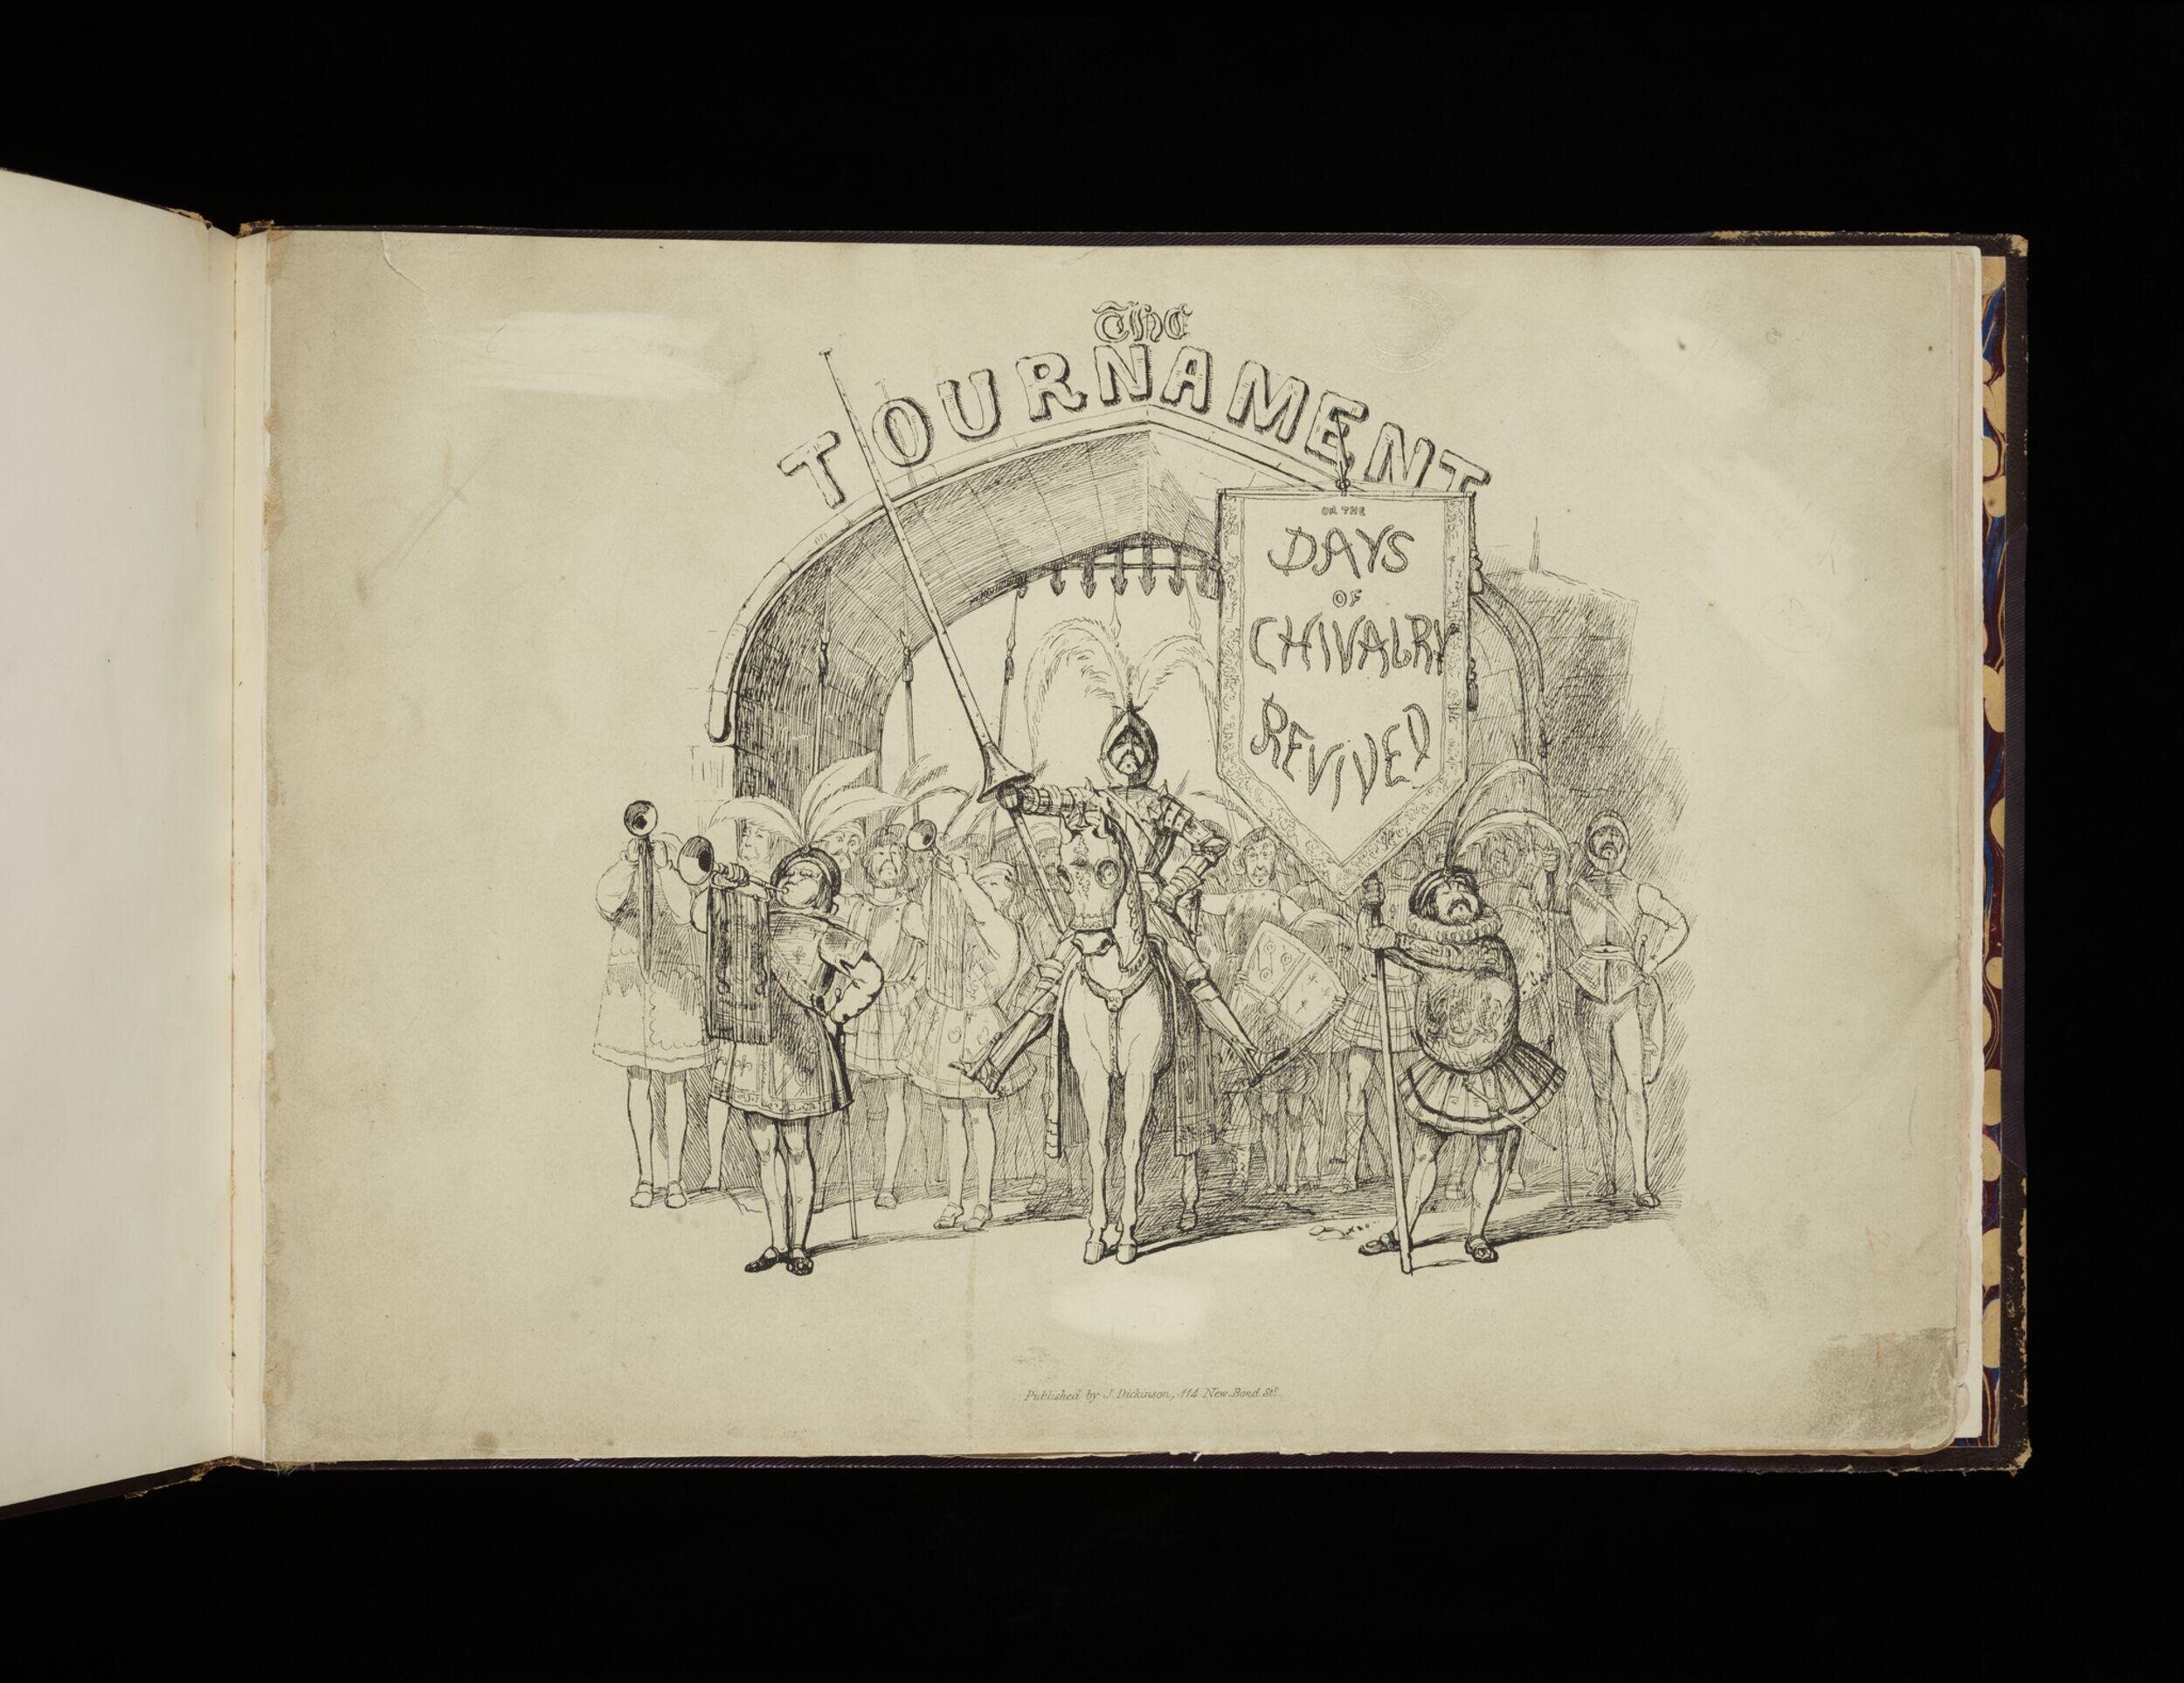 The
TOURNAMENT
OR THE
DAYS
OF
CHIVALRY
REVIVED
Published by J. Dickinson, 114 New Bond St.